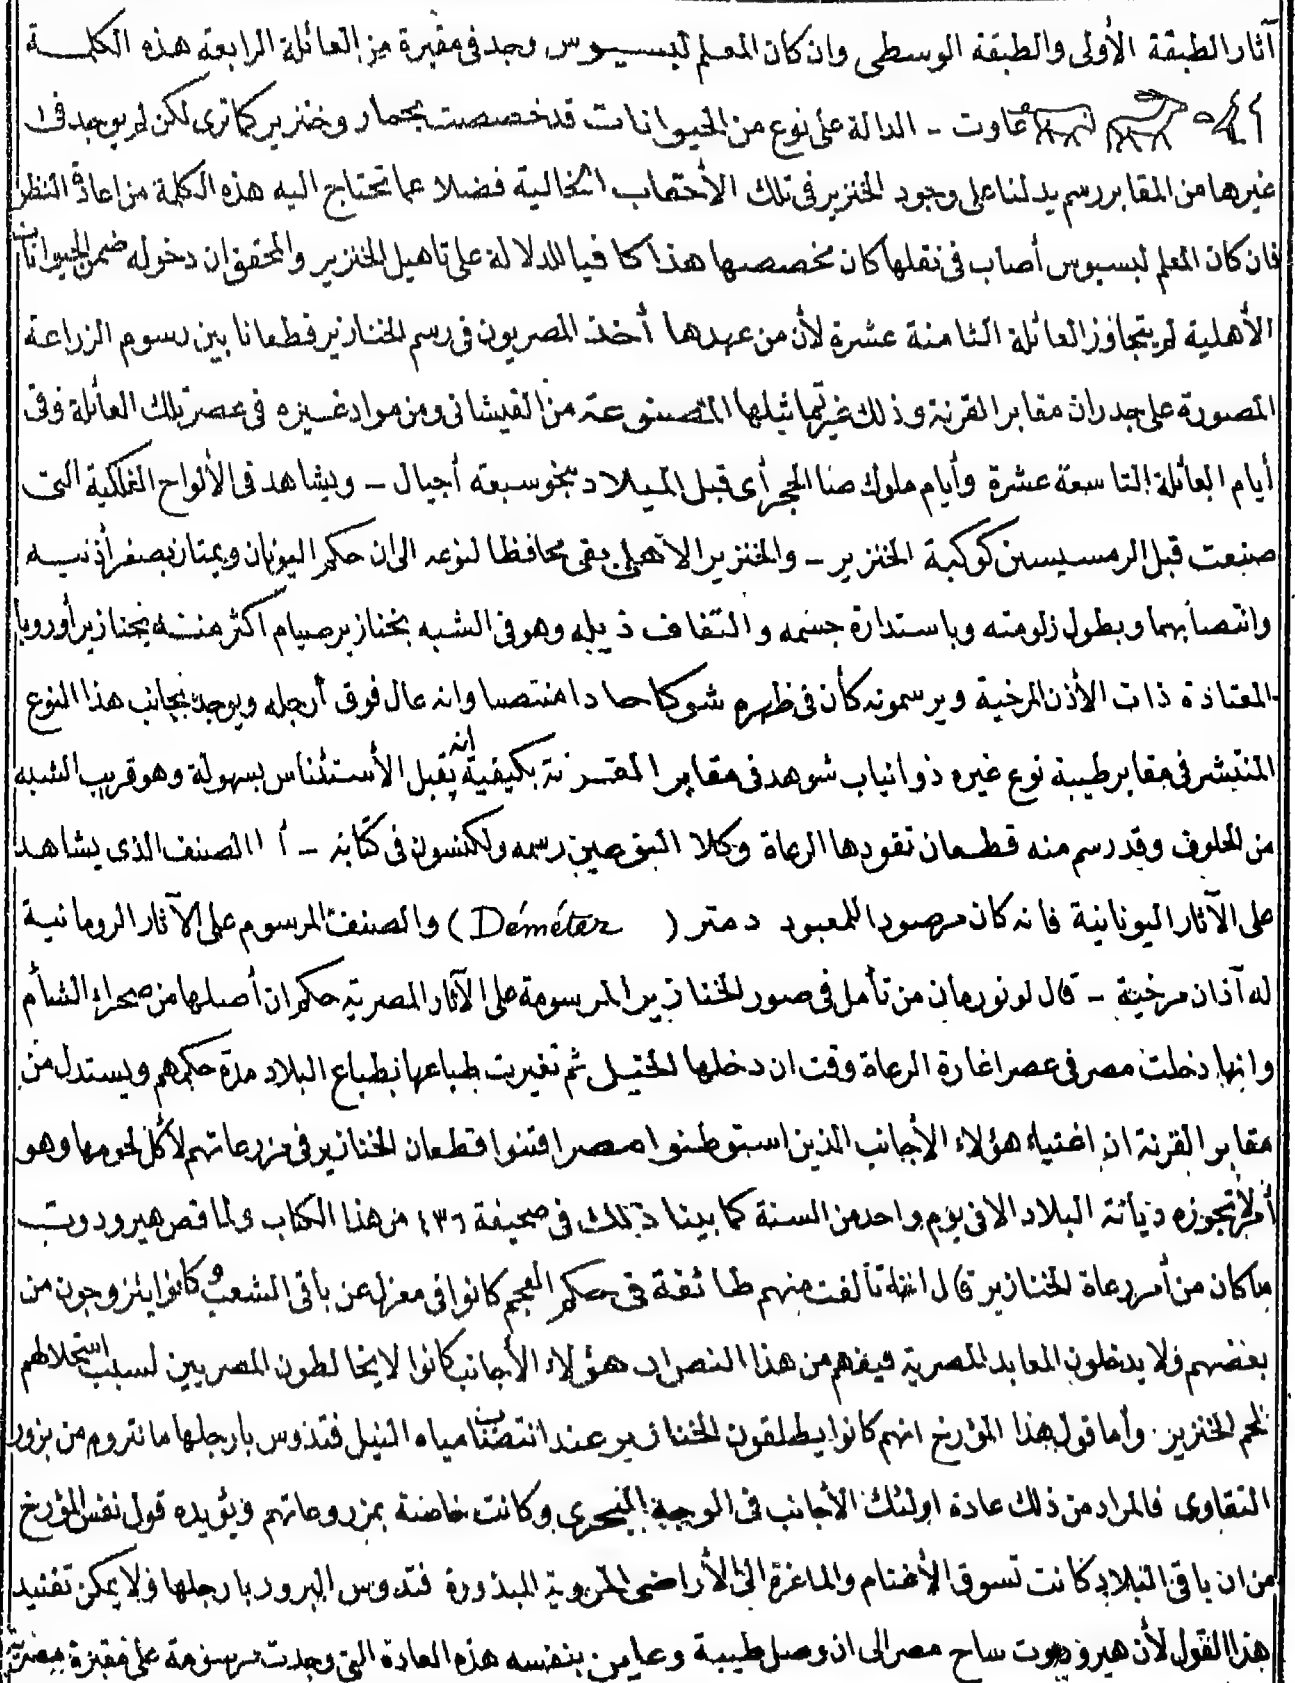 آثار الطبقة الأولى والطبقة الوسطى وان كان المعلم لبسيوس وجد فى مقبرة من العائلة الرابعة هذه الكلمة
عاوت - الدالة على نوع من الحيوانات قد خصصت بحمار وخنزير كما ترى لكن لم يوجد فى
غيرها من المقابر رسم يدلنا على وجود الخنزير فى تلك الأحقاب الخالية فضلا عما تحتاج اليه هذه الكلمة من اعادة النظر
فان كان المعلم لبسيوس أصاب فى نقلها كان مخصصها هذا كافيا للدلالة على تاهيل الخنزير والمحقق ان دخوله ضمن الحيوانات
الأهلية لم يتجاوز العائلة الثامنة عشرة لأن من عهدها أخذ المصريون فى رسم الخنازير قطعانا بين رسوم الزراعة
المصورة على جدران مقابر القرنة وذلك غير تماثيلها المصنوعة من القيشانى ومن مواد غيره فى عصر تلك العائلة وفى
أيام العائلة التاسعة عشرة وأيام ملوك صا الحجر أى قبل الميلاد بنحو سبعة أجيال - ويشاهد فى الألواح الفلكية التى
صنعت قبل الرمسيسين كوكبة الخنزير - والخنزير الاهلى بقى محافظا لنوعه الى ان حكم اليونان ويمتاز بصغر أذنيه
وانتصابهما وبطول زلومته وباستدارة جسمه والتفاف ذيله وهو فى الشبه بخنازير صيام أكثر منه بخنازير أوروبا
المعتادة ذات الأذن المرخية ويرسمونه كأن فى ظهره شوكا حادا منتصبا وانه عال فوق أرجله ويوجد بجانب هذا النوع
المنتشر فى مقابر طيبة نوع غيره ذو انياب شوهد فى مقابر القرنة بكيفية انه يقبل الأستئناس بسهولة وهو قريب الشبه
من الحلوف وقد رسم منه قطعان تقودها الرعاة وكلا النوعين رسمه ولكنسون فى كتابه - أما الصنف الذى يشاهد
على الآثار اليونانية فانه كان مرصودا للمعبود دمتر (Déméter) والصنف المرسوم على الآثار الرومانية
له آذان مرخية - قال لونورمان من تأمل فى صور الخنازير المرسومة على الآثار المصرية حكم ان أصلها من صحراء الشأم
وانها دخلت مصر فى عصر اغارة الرعاة وقت ان دخلها الخيل ثم تغيرت طباعها بطباع البلاد مدة حكمهم ويستدل من
مقابر القرنة ان اغنياء هؤلاء الأجانب الذين استوطنوا مصر اقتنوا قطعان الخنازير فى مزرعاتهم لأكل لحومها وهو
أمر لا تجوزه ديانة البلاد الا فى يوم واحد من السنة كما بينا ذلك فى صحيفة ٤٣٦ من هذا الكتاب ولما قص هيرودوت
ما كان من أمر رعاة الخنازير قال انه تألفت منهم طائفة فى حكم العجم كانوا فى معزل عن باقى الشعب وكانوا يتزوجون من
بعضهم ولا يدخلون المعابد المصرية فيفهم من هذا النص ان هؤلاء الأجانب كانوا لا يخالطون المصريين لسبب استحلالهم
لحم الخنزير. وأما قول هذا المؤرخ انهم كانوا يطلقون الخنازير عند انتضاب مياه النيل فتدوس بارجلها ما نتروم من بزور
التقاوى فالمراد من ذلك عادة اولئك الأجانب فى الوجه البحرى وكانت خاصة بمزروعاتهم ويؤيده قول نفس المؤرخ
من ان باقى البلاد كانت تسوق الأغنام والماعزة الى الأراضى المروية المبذورة فتدوس البرور بارجلها ولا يمكن تفنيد
هذا القول لأن هيرودوت ساح مصر الى ان وصل طيبة وعاين بنفسه هذه العادة التى وجدت مرسومة على مقبرة مصرية